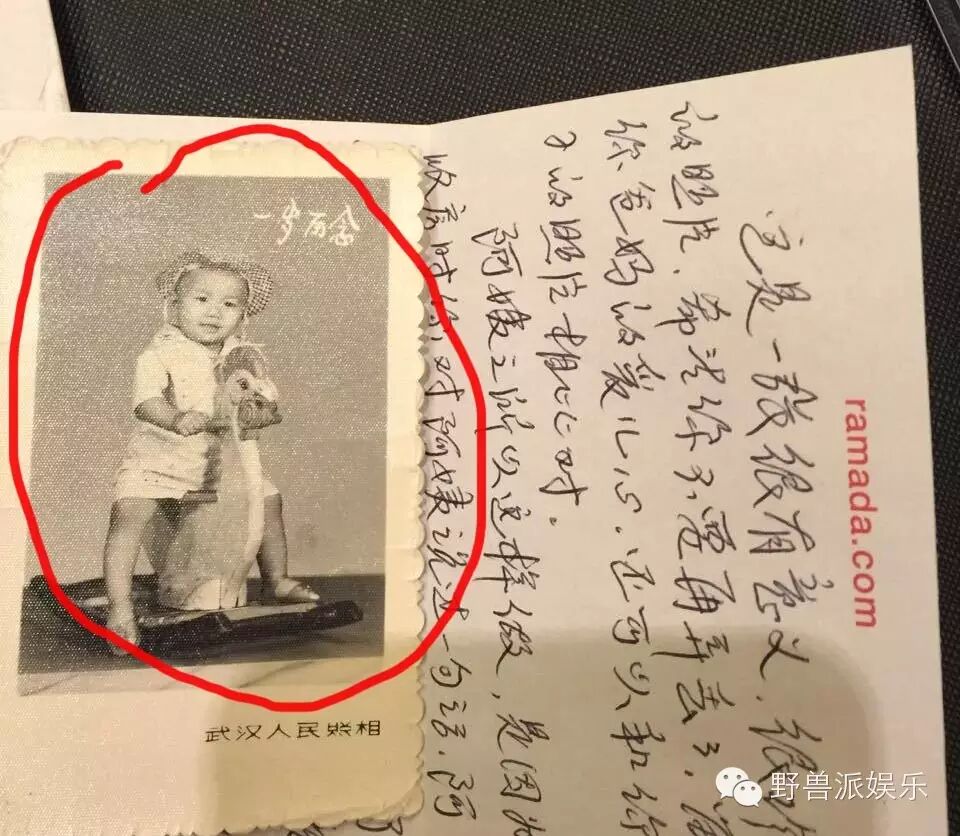 一岁留念
武汉人民照相
ramada.com
这是一张很有意义,很
的照片,希望你不要再弄丢了,
你爸妈的爱儿心,还可以和你
子的照片相比对。
阿姨之所以这样做,是因为
收房时你对阿姨说过一句话,阿
野兽派娱乐